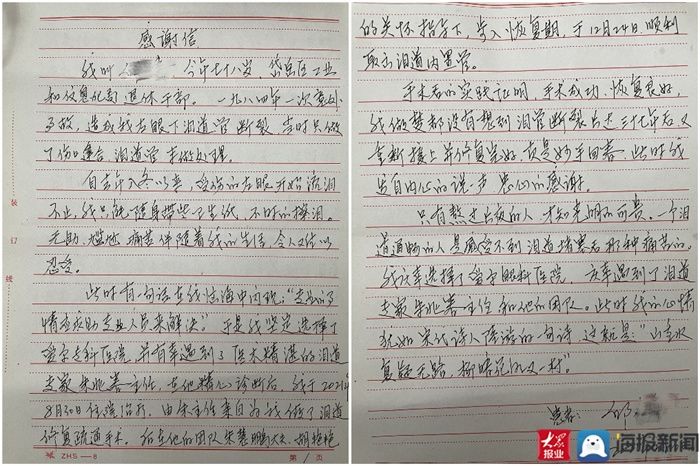 感谢信
我叫 今年七十八岁，岱岳区工业
和信息化局退休干部。一九八四年一次意外
事故，造成我右眼下泪道管断裂，当时只做
了伤口缝合，泪道管未做处理。
自去年入冬以来，受伤的右眼开始流泪
不止，我只能随身带些卫生纸，不时的擦泪。
无助、尴尬、痛苦伴随着我的生活，令人难以
忍受。
此时有一句话在我脑海中闪现："专业的事
情应由专业人员来解决"。于是我坚定选择了
眼科医院，并有幸遇到了医术精湛的泪道
专家朱兆善主任，在他精心诊断后，我于2021年
8月30日住院治疗，由朱主任亲自为我做了泪道
修复疏通手术。后在他的团队朱慧鹏大夫、
ZHS-8
第 1 页
装
订
线
的关怀指导下，步入恢复期，于12月24日顺利
取出泪道内置管。
手术后的实践证明，手术成功、恢复良好，
我做梦都没有想到泪管断裂长达三十七年后又
重新接上并修复完好，真是妙手回春，此时我
发自内心的说一声 衷心的感谢。
只有熬过长夜的人，才知光明的可贵。一个泪
道通畅的人是感受不到泪道堵塞后那种痛苦的。
我庆幸选择了 眼科医院，庆幸遇到了泪道
专家朱兆善主任和他的团队。此时我的心情
犹如宋代诗人陆游的一句诗，这就是："山重水
复疑无路，柳暗花明又一村"。
患者：邹
大众报业
海报新闻